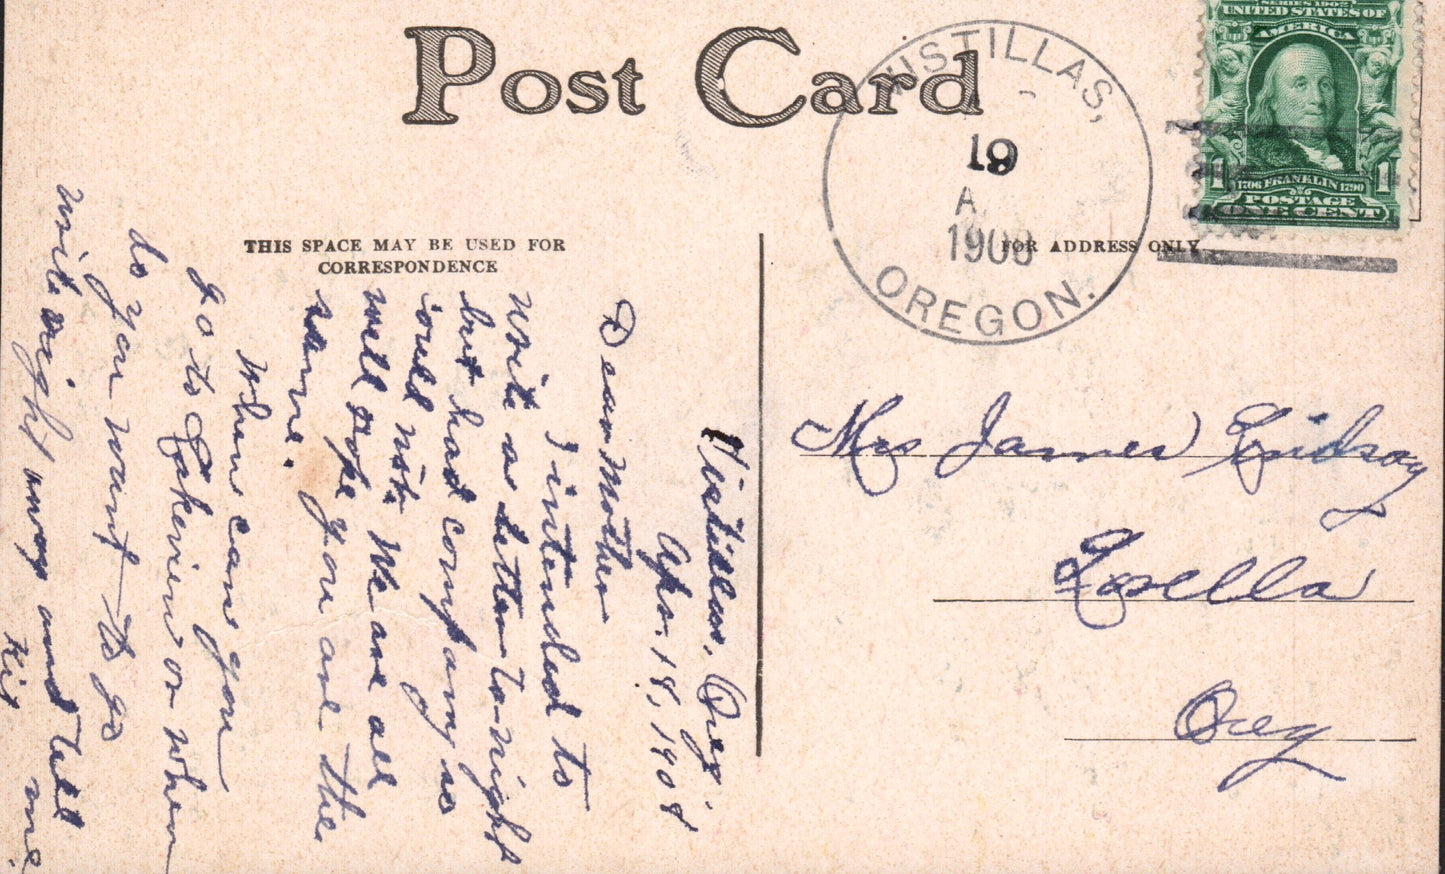 Post Card
THIS SPACE MAY BE USED FOR
CORRESPONDENCE
FOR ADDRESS ONLY
MISTILLAS,
19
A.
1908
OREGON.
SERIES 1902
UNITED STATES OF
AMERICA
1 1706 FRANKLIN 1790 1
POSTAGE
ONE CENT
Mrs James Lindsay
Losella
Oreg
Oreg.
Apr. 18, 1908
Dear Mother
I intended to
write a letter to-night
but had company so
could not. We are all
well hope you are the
same.
When can you
go to or when
do you want to go
write right away and tell
me.
Kit